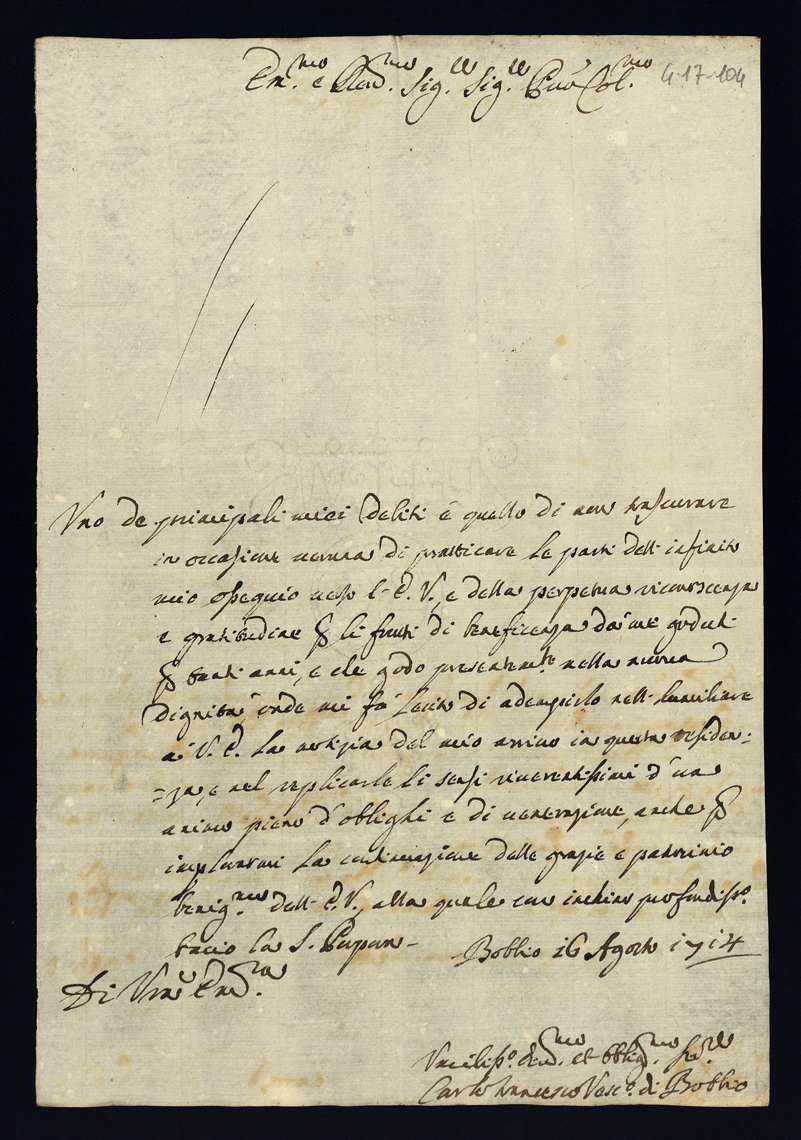 Em.mo e Rev.mo Sig.re Sig.re P.rone Col.mo 4-17-104
Vno de principali miei debiti è quello di non trascurare
in occasione ueruna di pratticare le parti dell' infinito
mio ossequio uerso l' E. V., e della perpetua riconoscenza
e gratitudine ꝑ li frutti di beneficenza da me goduti
ꝑ tanti anni, e che godo presentem.te nella nuoua
dignità, onde mi fò lecito di adempirlo nell' humiliare
à V. E. la notizia del mio arriuo in questa residen=
=za, e nel replicarle li sensi riuerentissimi d' un
animo pieno d' oblighi e di uenerazione, anche ꝑ
implorarmi la continuazione delle grazie e patrocinio
benig.mo dell' E. V., alla quale con inchino profondiss.o
bacio la S. Porpora.
Bobbio 16 Agosto 1714
Di Vra Em.za
Vmiliss.o deu.mo et obblig.mo ser.re
Carlo Francesco Vesc.o di Bobbio